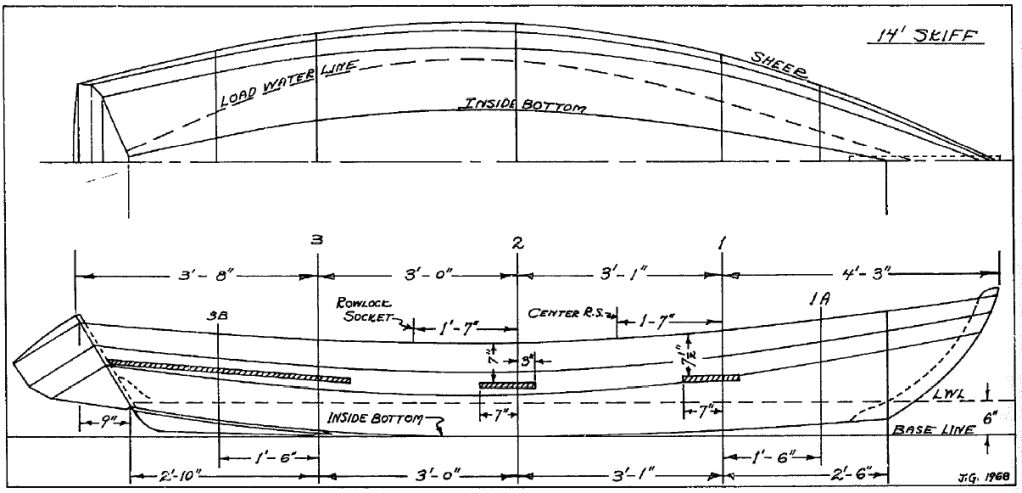 14' SKIFF
SHEER
LOAD WATER LINE
INSIDE BOTTOM
3
2
1
3'-8"
3'-0"
3'-1"
4'-3"
3B
ROWLOCK
SOCKET
1'-7"
CENTER R.S.
1-7"
1A
7"
3"
7½"
7"
7"
LWL
6"
9"
INSIDE BOTTOM
BASE LINE
1'-6"
1'-6"
2'-10"
3'-0"
3'-1"
2'-6"
J.G. 1968